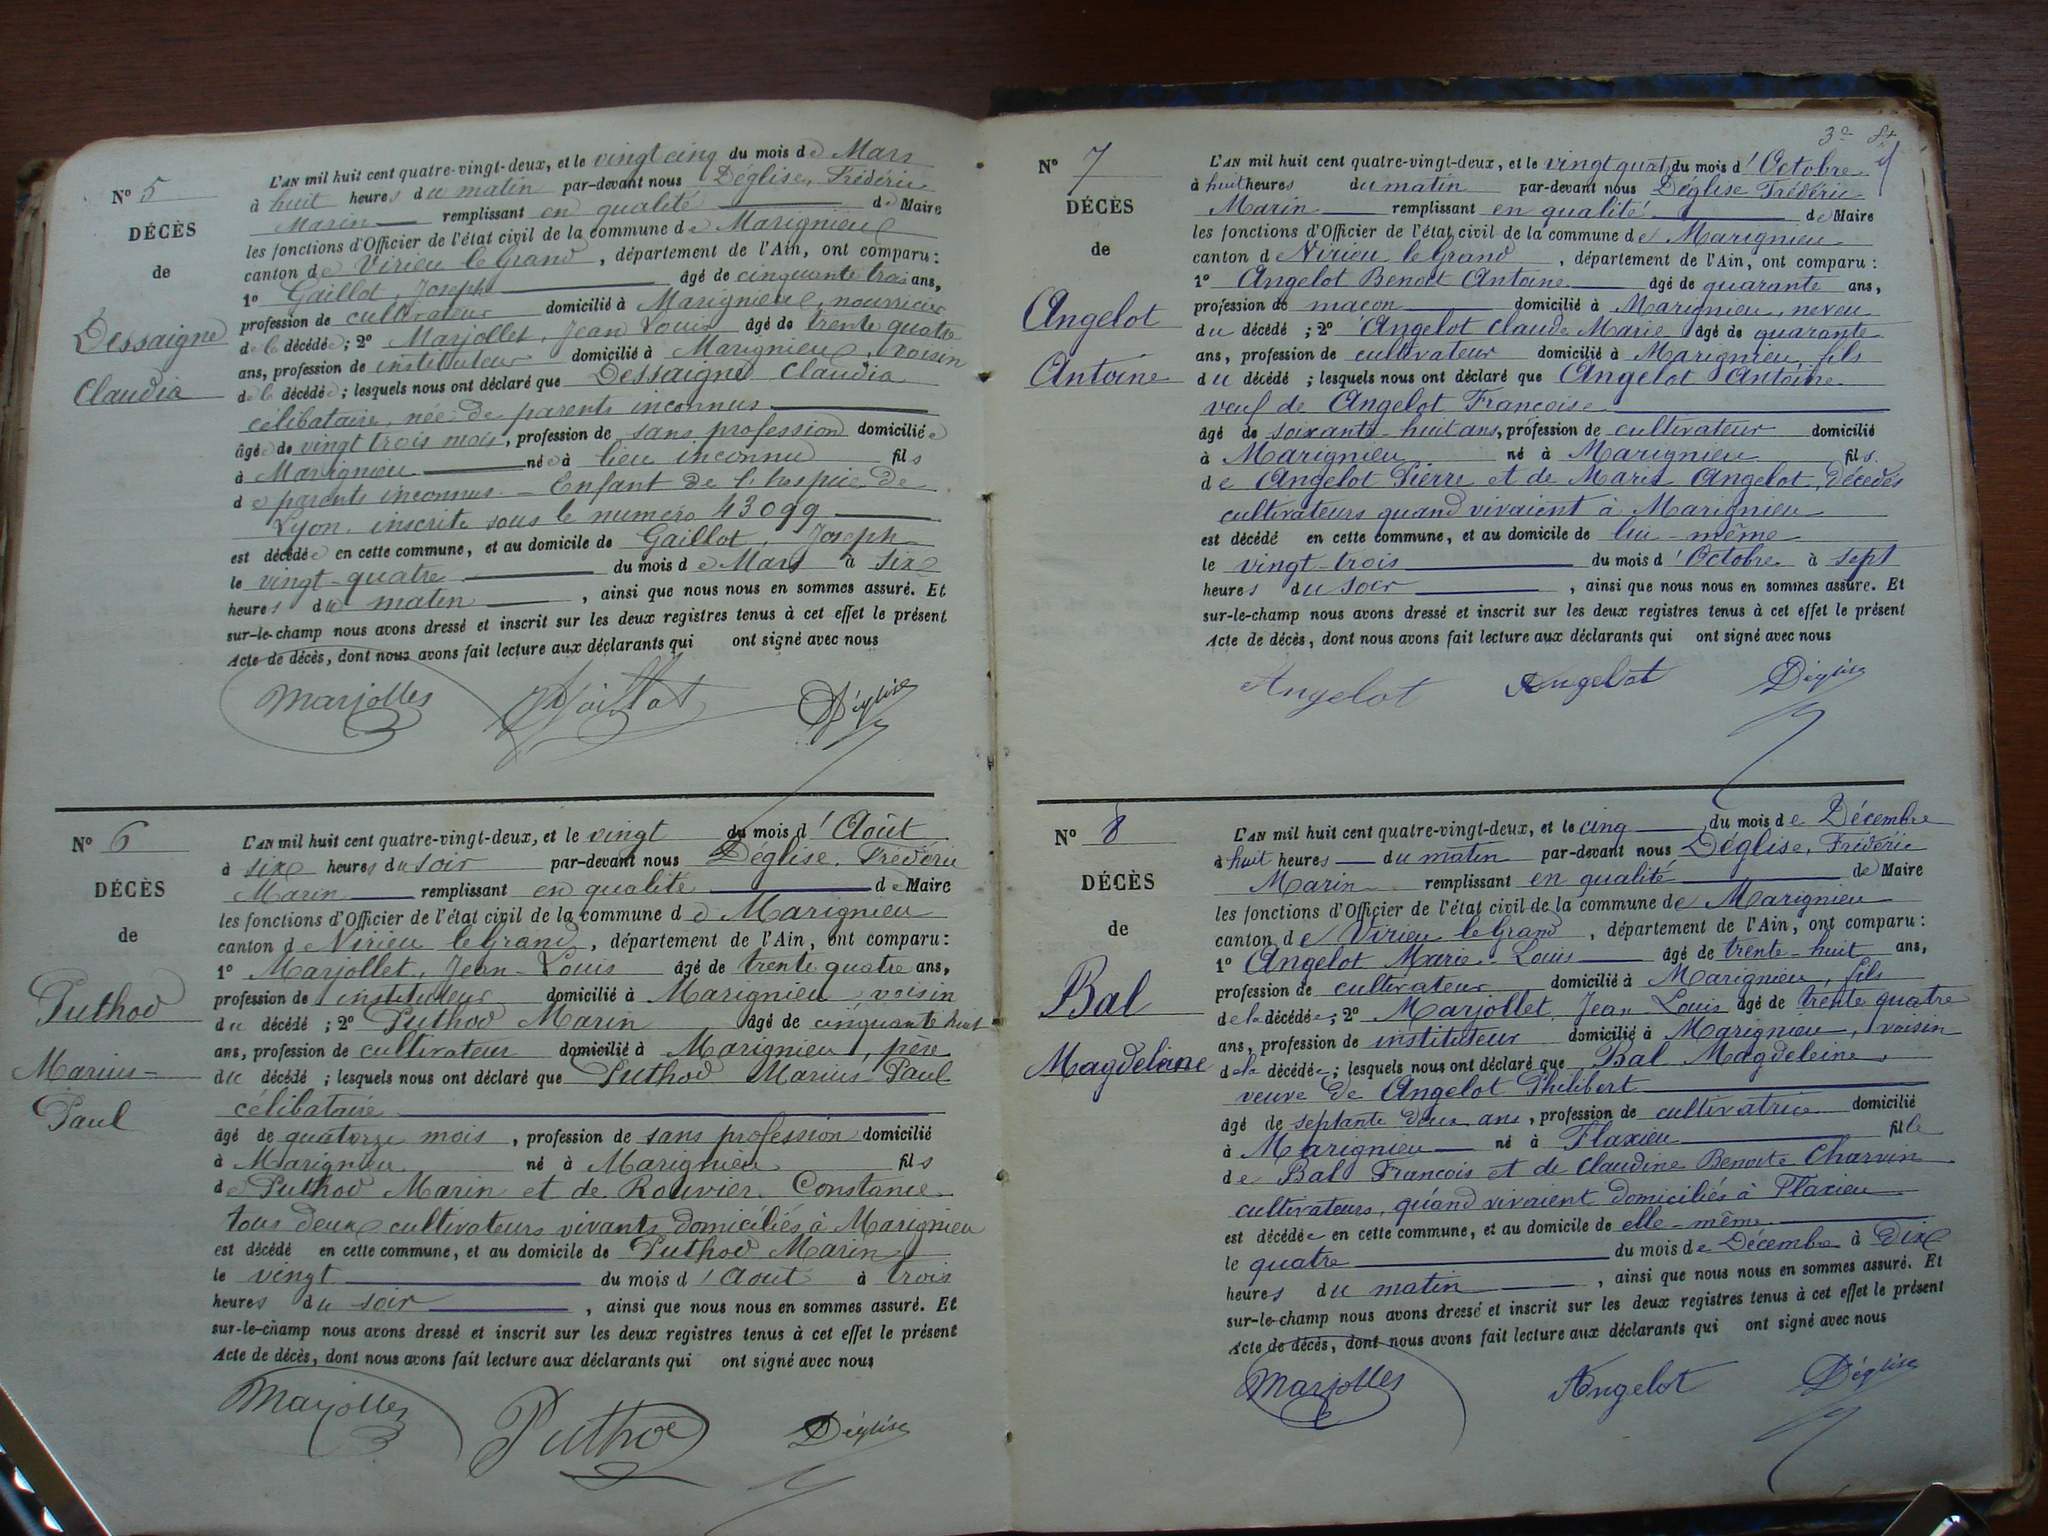 N° 5
DÉCÈS
de
Dessaigne
Claudia
L'AN mil huit cent quatre-vingt-deux, et le vingt cinq du mois de Mars
à huit heures du matin par-devant nous Déglise, Frédéric
Marin remplissant en qualité de Maire
les fonctions d'Officier de l'état civil de la commune de Marignieu
canton de Virieu le Grand, département de l'Ain, ont comparu :
1° Gaillot, Joseph âgé de cinquante trois ans,
profession de cultivateur domicilié à Marignieu, nourricier
de la décédée ; 2° Marjollet, Jean Louis âgé de trente quatre
ans, profession de instituteur domicilié à Marignieu, voisin
de la décédée ; lesquels nous ont déclaré que Dessaigne Claudia
célibataire, née de parents inconnus
âgée de vingt trois mois, profession de sans profession domiciliée
à Marignieu née à lieu inconnu fils
de parents inconnus - Enfant de l'hospice de
Lyon, inscrite sous le numéro 43099
est décédée en cette commune, et au domicile de Gaillot, Joseph
le vingt-quatre du mois de Mars à six
heures du matin, ainsi que nous nous en sommes assuré. Et
sur-le-champ nous avons dressé et inscrit sur les deux registres tenus à cet effet le présent
Acte de décès, dont nous avons fait lecture aux déclarants qui ont signé avec nous
Marjollet Gaillot Déglise
N° 6
DÉCÈS
de
Puthod
Marius-
Paul
L'AN mil huit cent quatre-vingt-deux, et le vingt du mois d'Août
à six heures du soir par-devant nous Déglise, Frédéric
Marin remplissant en qualité de Maire
les fonctions d'Officier de l'état civil de la commune de Marignieu
canton de Virieu le Grand, département de l'Ain, ont comparu :
1° Marjollet, Jean-Louis âgé de trente quatre ans,
profession de instituteur domicilié à Marignieu, voisin
du décédé ; 2° Puthod Marin âgé de cinquante huit
ans, profession de cultivateur domicilié à Marignieu, père
du décédé ; lesquels nous ont déclaré que Puthod Marius Paul
célibataire
âgé de quatorze mois, profession de sans profession domicilié
à Marignieu né à Marignieu fils
de Puthod Marin et de Rouvier Constance
tous deux cultivateurs vivants, domiciliés à Marignieu
est décédé en cette commune, et au domicile de Puthod Marin
le vingt du mois d'Août à trois
heures du soir, ainsi que nous nous en sommes assuré. Et
sur-le-champ nous avons dressé et inscrit sur les deux registres tenus à cet effet le présent
Acte de décès, dont nous avons fait lecture aux déclarants qui ont signé avec nous
Marjollet Puthod Déglise
N° 7
DÉCÈS
de
Angelot
Antoine
L'AN mil huit cent quatre-vingt-deux, et le vingt quatre du mois d'Octobre
à huit heures du matin par-devant nous Déglise Frédéric
Marin remplissant en qualité de Maire
les fonctions d'Officier de l'état civil de la commune de Marignieu
canton de Virieu le Grand, département de l'Ain, ont comparu :
1° Angelot Benoit Antoine âgé de quarante ans,
profession de maçon domicilié à Marignieu, neveu
du décédé ; 2° Angelot Claude Marie âgé de quarante
ans, profession de cultivateur domicilié à Marignieu, fils
du décédé ; lesquels nous ont déclaré que Angelot Antoine
veuf de Angelot Françoise
âgé de soixante-huit ans, profession de cultivateur domicilié
à Marignieu né à Marignieu fils
de Angelot Pierre et de Marie Angelot, décédés
cultivateurs quand vivaient à Marignieu
est décédé en cette commune, et au domicile de lui-même
le vingt-trois du mois d'Octobre à sept
heures du soir, ainsi que nous nous en sommes assuré. Et
sur-le-champ nous avons dressé et inscrit sur les deux registres tenus à cet effet le présent
Acte de décès, dont nous avons fait lecture aux déclarants qui ont signé avec nous
Angelot Angelot Déglise
N° 8
DÉCÈS
de
Bal
Magdeleine
L'AN mil huit cent quatre-vingt-deux, et le cinq du mois de Décembre
à huit heures du matin par-devant nous Déglise, Frédéric
Marin remplissant en qualité de Maire
les fonctions d'Officier de l'état civil de la commune de Marignieu
canton de Virieu le Grand, département de l'Ain, ont comparu :
1° Angelot Marie-Louis âgé de trente-huit ans,
profession de cultivateur domicilié à Marignieu, fils
de la décédée ; 2° Marjollet, Jean-Louis âgé de trente quatre
ans, profession de instituteur domicilié à Marignieu, voisin
de la décédée ; lesquels nous ont déclaré que Bal Magdeleine,
veuve de Angelot Philibert
âgé de septante deux ans, profession de cultivatrice domicilié
à Marignieu né à Flaxieu fille
de Bal François et de Claudine Benoite Charvin
cultivateurs, quand vivaient domiciliés à Flaxieu
est décédée en cette commune, et au domicile de elle-même
le quatre du mois de Décembre à dix
heures du matin, ainsi que nous nous en sommes assuré. Et
sur-le-champ nous avons dressé et inscrit sur les deux registres tenus à cet effet le présent
Acte de décès, dont nous avons fait lecture aux déclarants qui ont signé avec nous
Marjollet Angelot Déglise